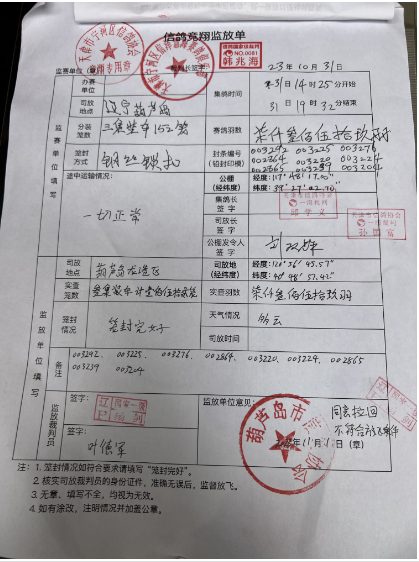 信鸽竞翔监放单
天津市宁河区信鸽协会
国家级裁判
NO.0081
韩兆海
监赛单位(章)
签字
23年10月31日
办赛单位
集鸽时间
31日14时25分开始
31日19时32分结束
司放地点
辽宁葫芦岛
分装笼数
三集装车152笼
赛鸽羽数
柒仟叁佰伍拾玖羽
笼封方式
钢丝锁扣
封条编号(铅封印模)
003292 003225 003276
002864 003220 003224
002865 003239 003204
途中运输情况:
一切正常
公棚(经纬度)
经度:117°48′17.00″
纬度:39°27′02.70″
集鸽长签字
邱学义
司放长签字
孙国富
公棚发令人签字
监赛单位填写
司放地点
司放地(经纬度)
经度:120°56′45.57″
纬度:40°48′51.42″
实查笼数
实查羽数
柒仟叁佰伍拾玖羽
笼封情况
笼封完好
天气情况
多云
司放时间
备注
003292. 003225. 003276. 002864. 003220. 003224. 002865
003239 003204
监放单位填写
监放裁判员
签字:
签字:
叶信军
监放单位意见:
同意拉回
葫芦岛市信鸽协会
11月1日(章)
注:1. 笼封情况如符合要求请填写“笼封完好”。
2. 核实司放裁判员的身份证件,准确无误后,监督放飞。
3. 无章,填写不全,均视为无效。
4. 如有涂改,注明情况并加盖公章。